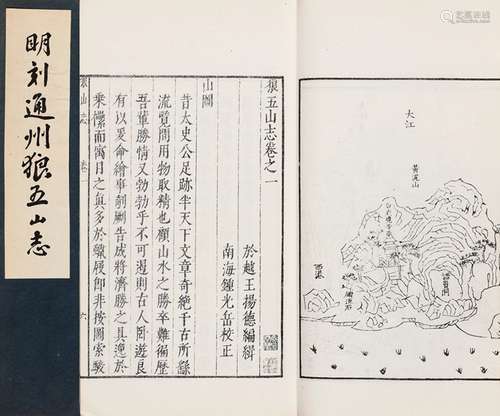 明刻通州狼五山志
大江
黃泥山
狼五山志卷之一
於越王揚德編緝
南海鍾光岳校正
山圖
昔太史公足跡半天下文章奇絕千古所繇
流用物取精也顧山水之勝卒難徧歷
吾輩勝情又勃勃乎不可遏則古人遊良
有以爰命繪事剞劂告成將濟勝之具逸於
乘而寓目之眞多於蠟屐卽非按圖索駿
狼山志 卷 六